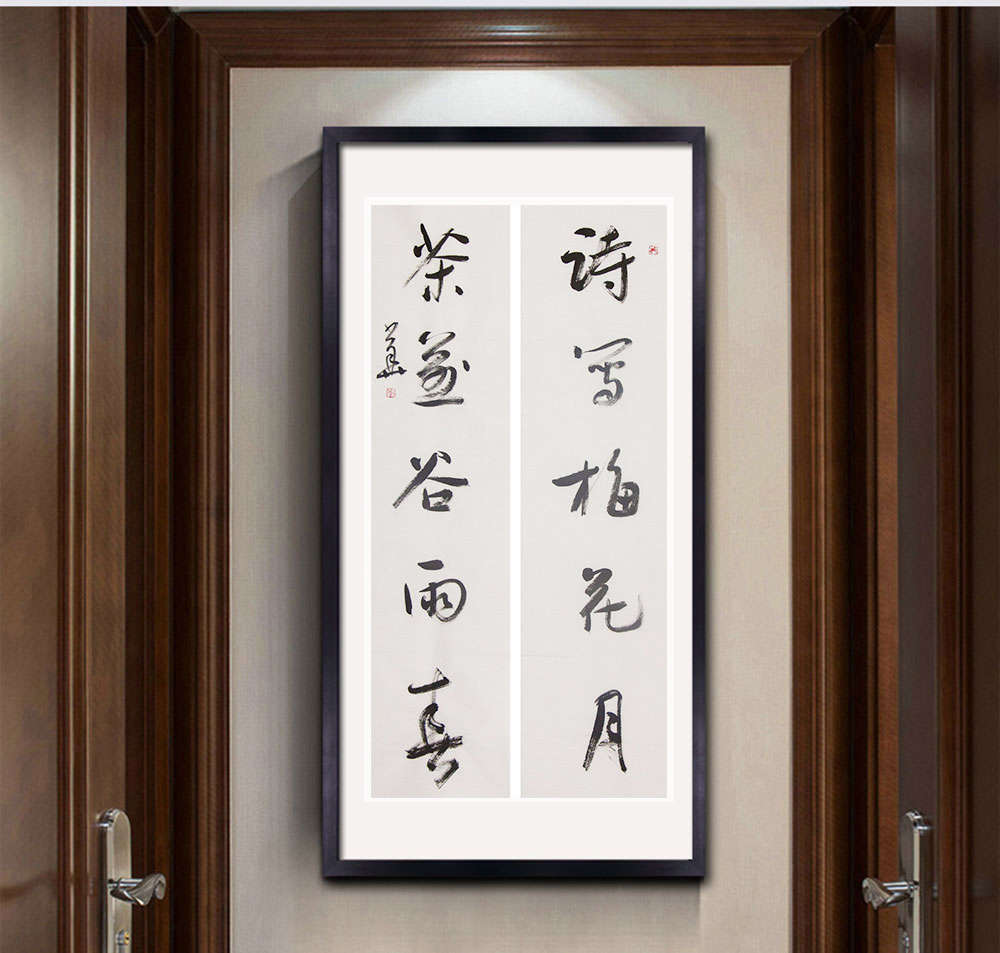 诗写梅花月
茶煎谷雨春